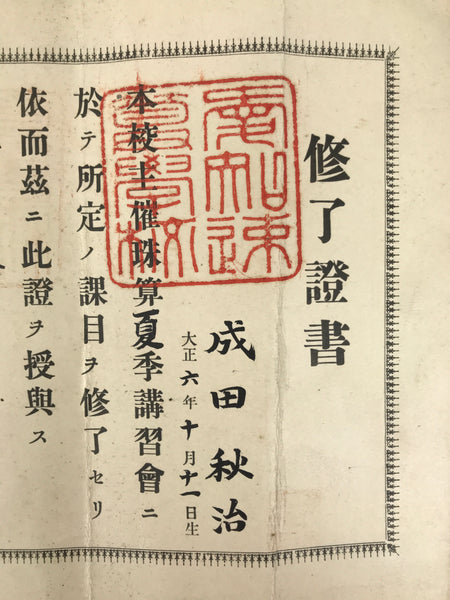 修了證書
成田秋治
大正六年十月十一日生
愛知速
算學校
本校主催珠算夏季講習會ニ
於テ所定ノ課目ヲ修了セリ
依而茲ニ此證ヲ授與ス